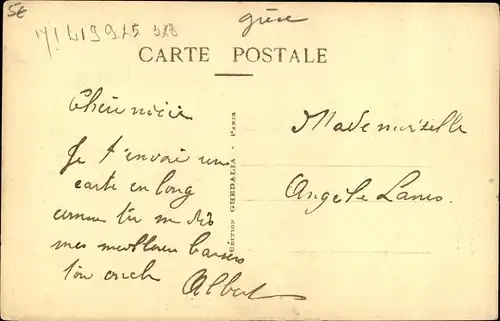 5€
grèce
CARTE POSTALE
Chère nièce
Je t'envoi une
carte en long
comme tu me dis
mes meilleurs baisers
ton oncle
Albert
EDITION GHEDALIA - PARIS
Mademoiselle
Angèle